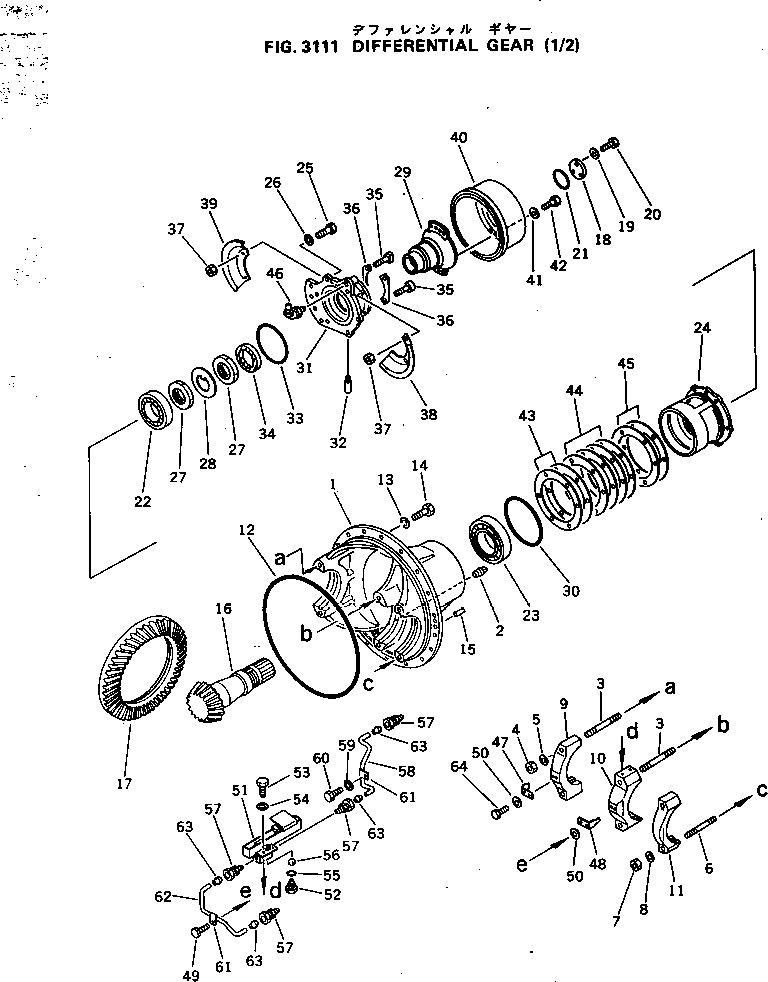 デファレンシャル ギヤー
FIG. 3111 DIFFERENTIAL GEAR (1/2)
40
25
29
26
35
39
36
20
19
18
37
21
42
46
41
35
36
24
31
33
45
38
44
34
32
37
43
27
28
27
22
1
13
14
12
a
30
23
16
b
2
15
c
3
a
9
17
57
5
3
4
b
59
63
47
d
60
50
10
53
58
64
51
54
61
c
57
63
57
63
56
e
48
6
55
50
11
62
e
d
52
8
7
57
49
61
63